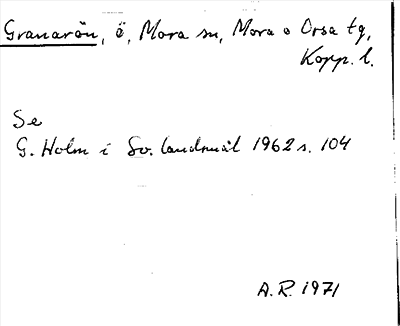 Granarön, ö, Mora sn, Mora o Orsa tg,
Kopp. l.
Se
G. Holm i Sv. landsmål 1962 s. 104
A.R. 1971